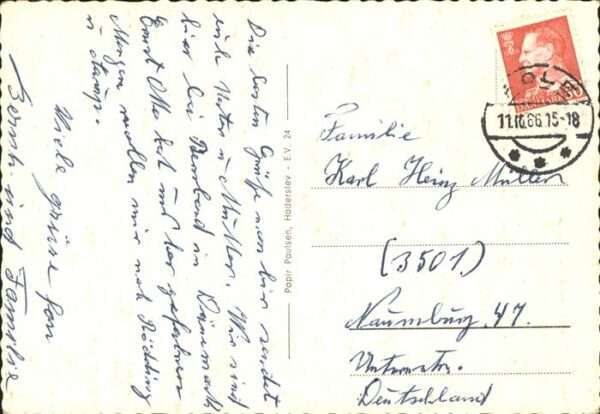 Die besten Grüße von hir sendet
euch Vater u Mutter. Wir sind
hier bei Bernhard in Dänemark
Ernst Otto hat uns her gefahren
Morgen wollen wir nach Rödding
Viele grüse fon
Bernh. und Familie
Papir Paulsen, Haderslev - E.V. 24
DANMARK
11.10.66.15-18
Familie
Karl Heinz Müller
(3501)
Naumburg. 47.
Deutschland